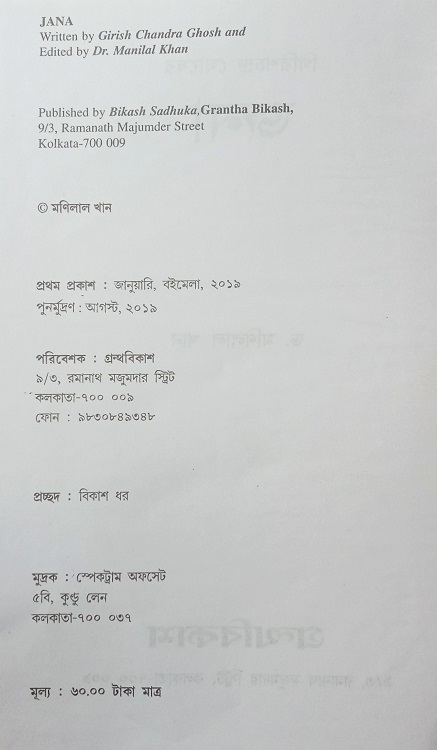 JANA
Written by Girish Chandra Ghosh and
Edited by Dr. Manilal Khan
Published by Bikash Sadhuka,Grantha Bikash,
9/3, Ramanath Majumder Street
Kolkata-700 009
© মণিলাল খান
প্রথম প্রকাশ : জানুয়ারি, বইমেলা, ২০১৯
পুনর্মুদ্রণ : আগস্ট, ২০১৯
পরিবেশক : গ্রন্থবিকাশ
৯/৩, রমানাথ মজুমদার স্ট্রিট
কলকাতা-৭০০ ০০৯
ফোন : ৯৮৩০৮৪৯৩৪৮
প্রচ্ছদ : বিকাশ ধর
মুদ্রক : স্পেকট্রাম অফসেট
৫বি, কুন্ডু লেন
কলকাতা-৭০০ ০৩৭
মূল্য : ৬০.০০ টাকা মাত্র